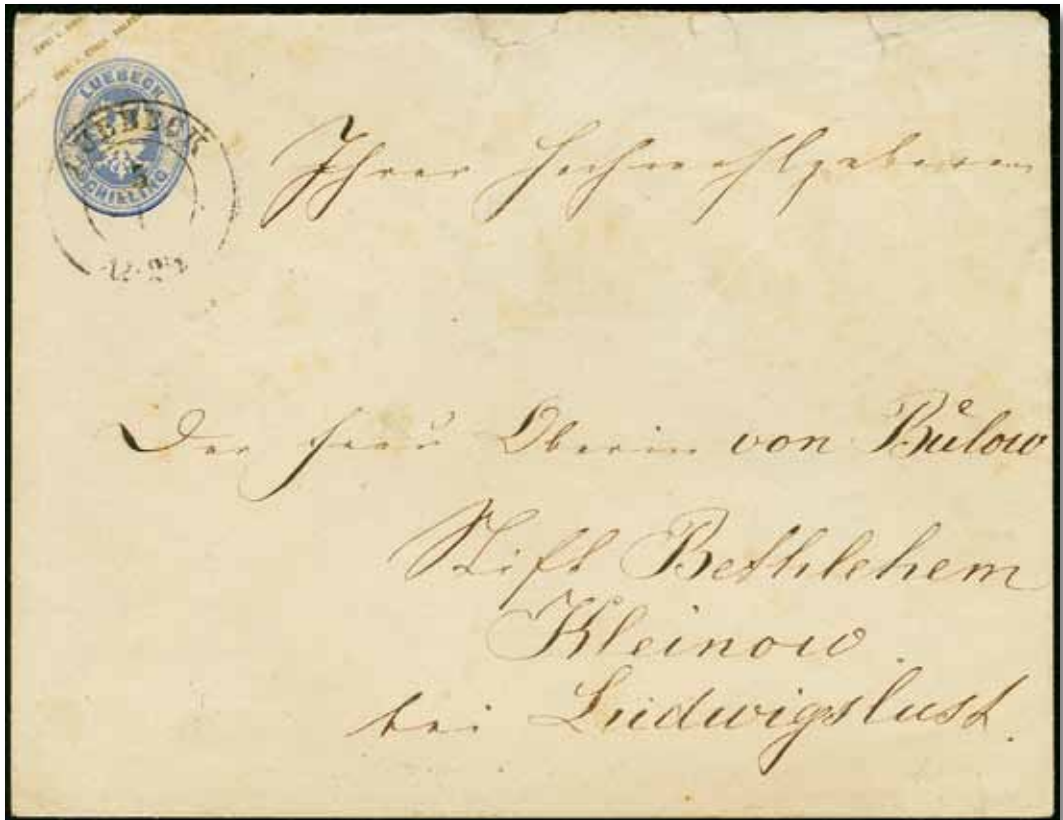 LUEBECK
SCHILLING
LUEBECK
5
Ihrer Hochwohlgeboren
Der Frau Oberin von Bülow
Stift Bethlehem
Kleinow
bei Ludwigslust.